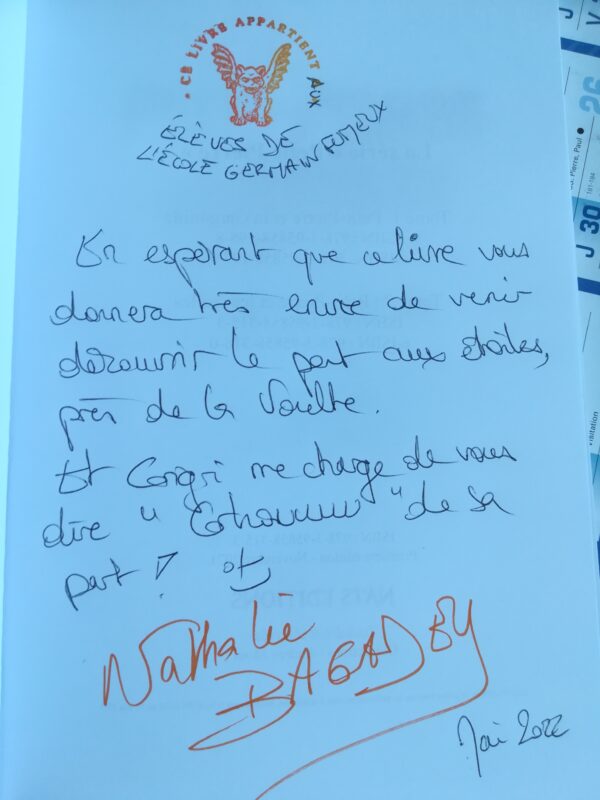 • CE LIVRE APPARTIENT AUX
ÉLÈVES DE
L'ÉCOLE GERMAIN FUMEUX
En espérant que ce livre vous
donnera très envie de venir
découvrir le pont aux étoiles,
près de la Voulte.
Et Congri me charge de vous
dire " " de sa
part !
Nathalie
DAGADEY
Mai 2022
J
V
26
J 30
Pierre, Paul
181-184